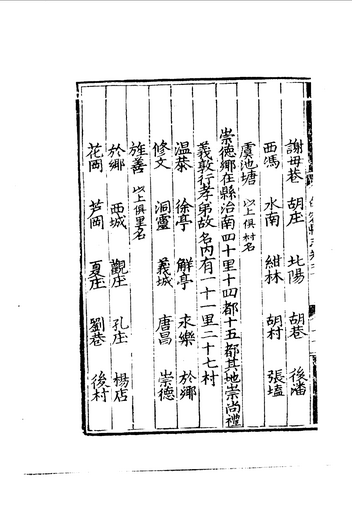 謝母巷 胡庄 北陽 胡巷 後潘
西馮 水南 紺林 胡村 張墟
虞池塘 以上俱村名
崇德鄉在縣治南四十里十四都十五都其地崇尚禮
義敦行孝弟故名内有一十一里二十七村
温恭 徐亭 解亭 永樂 於鄉
修文 洞靈 義城 唐昌 崇德
旌善 以上俱里名
於鄉 西城 觀庄 孔庄 楊店
花岡 芦岡 夏庄 劉巷 後村